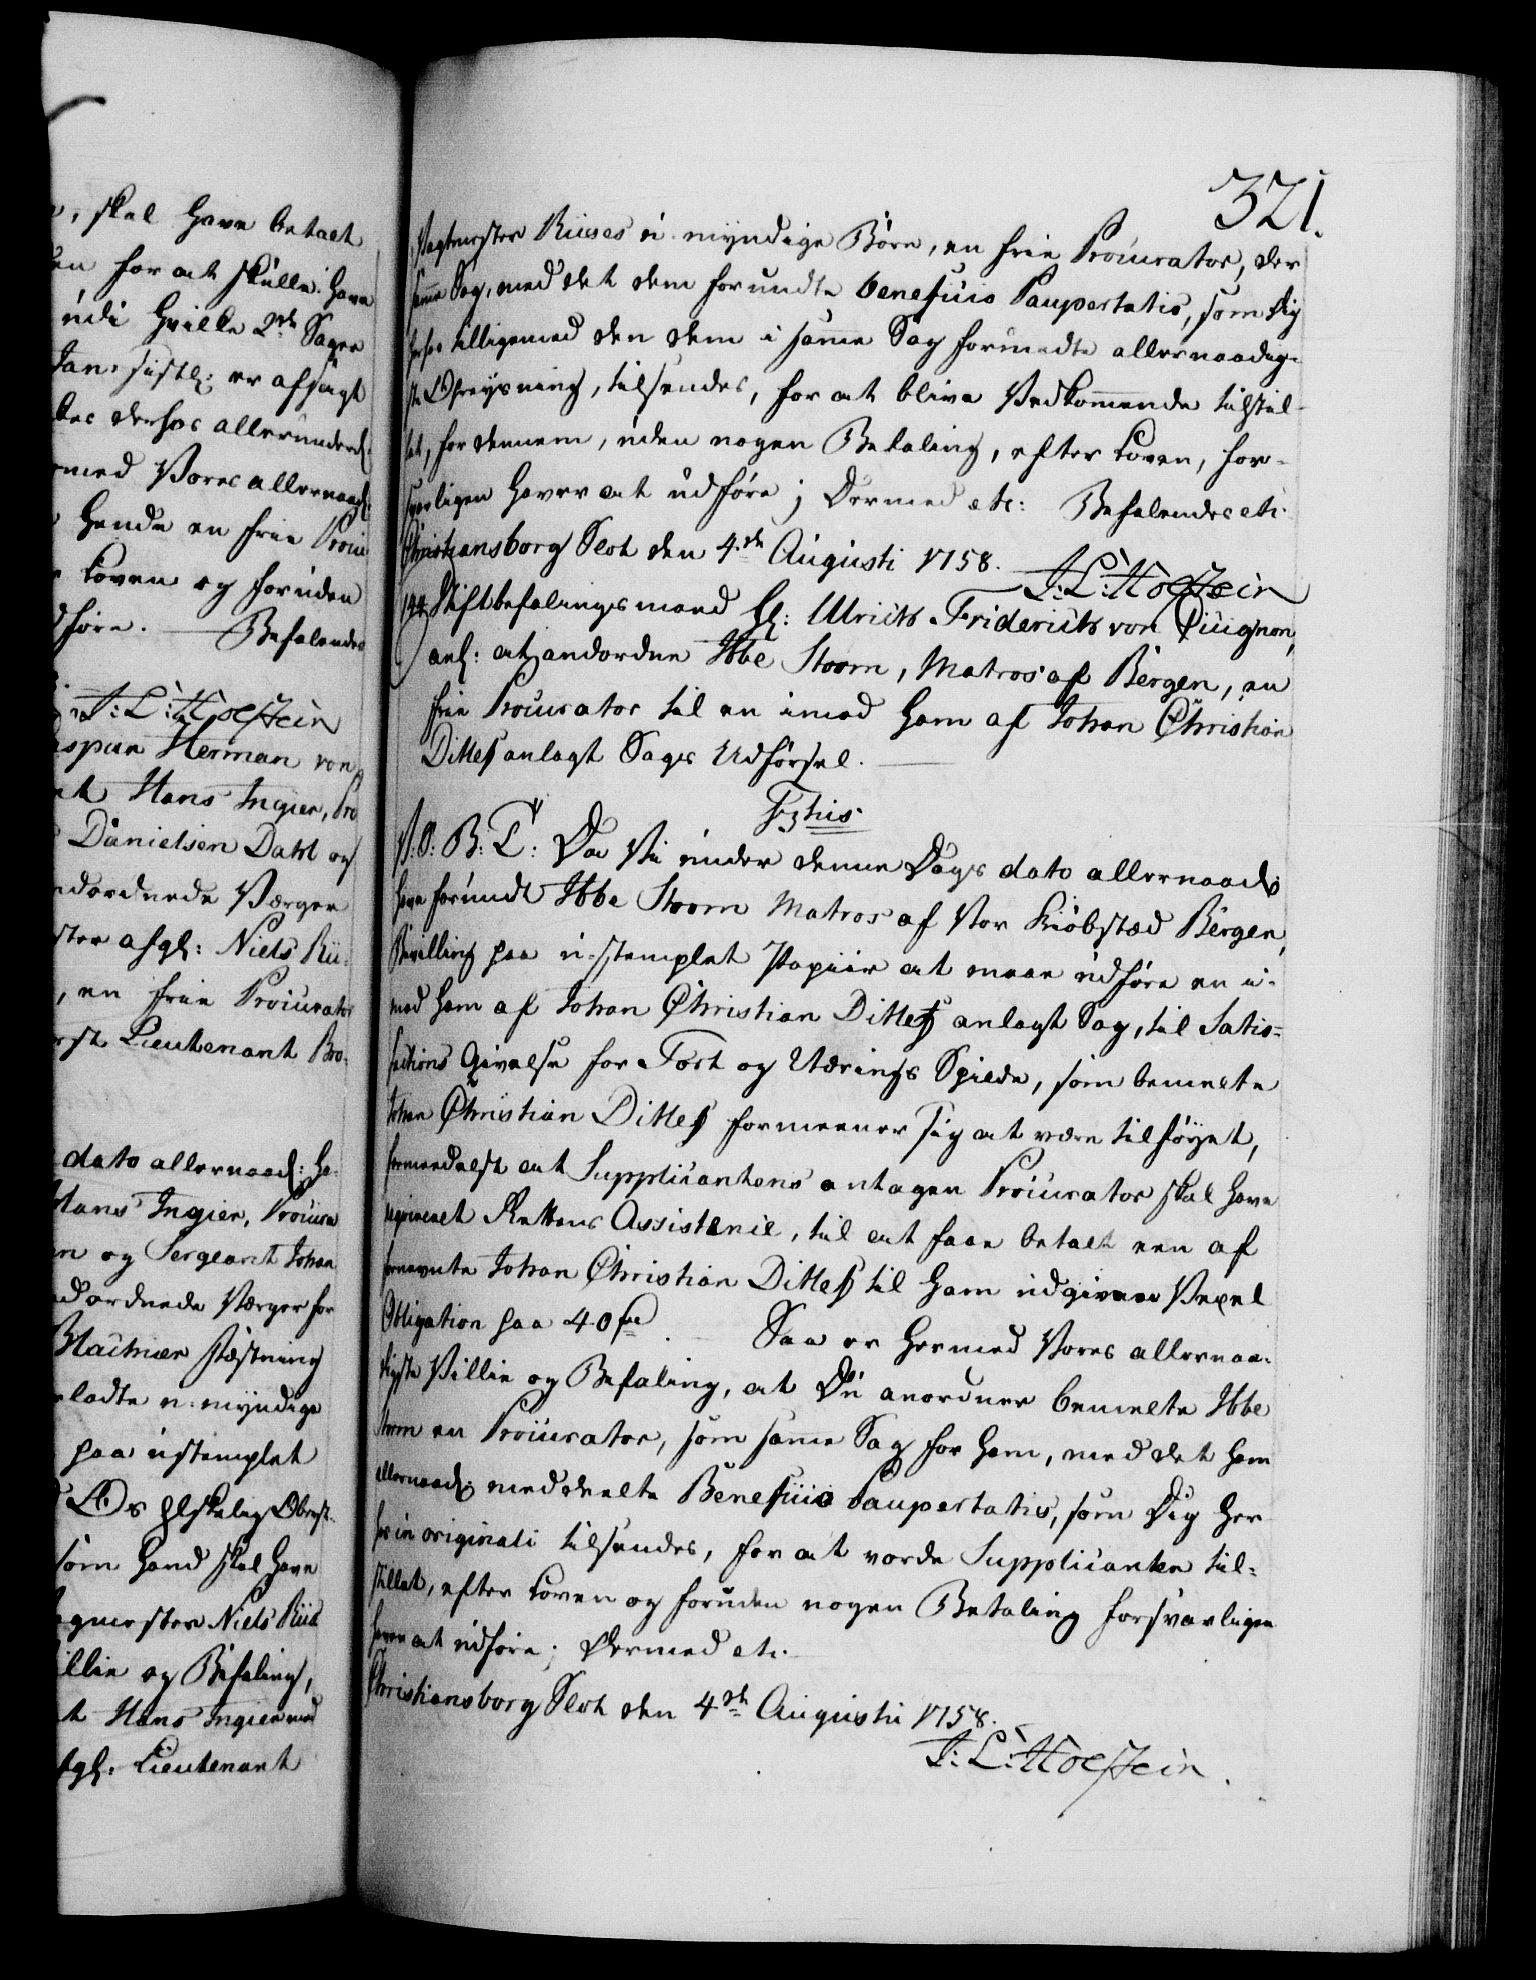 skal have betalt
for at skulle have
udi hvilke 2de Sager
Jan: sistl: er afsagt
derhos allerunderd:
med Vores allernaad:
hende en frie Procu
Loven og foruden
føre. Befalendes
J: L: Holstein
Herman von
Hans Ingier, Pro
Danielsen Dahl og
Værger
afgl: Niels Rii-
, en frie Procurator
Lieutenant Bro-
dato allernaad: ha-
Hans Ingier, Procura
og Sergeant Johan
Værger for
Fæstning
u-myndige
paa ustemplet
Os elskelig Obrist-
som hand skal have
Niels Riis
og Befaling,
Hans Ingier med
afgl: Lieutenant
321.
Riises u-myndige Børn, en frie Procurator, der
samme Sag, med det dem forundte beneficio Paupertatis, som dig
herhos tilligemed den dem i samme Sag formeedte allernaadig-
ste Opreysning, tilsendes, for at blive Vedkommende tilstil-
let, for dennem, uden nogen Betaling, efter Loven, for-
svarligen haver at udføre; Dermed etc: Befalendes etc:
Christiansborg Slot den 4de Augusti 1758.
J: L: Holstein
144. Stiftbefalingsmand Hr: Ulrich Friderich von Cicignon,
anl: at andordne Ebbe Storm, Matros af Bergen, en
frie Procurator til en imod ham af Johan Christian
Ditlef anlagt Sags Udførsel.
F5tus
V: S: B: T: Da Vi under denne Dags dato allernaad:
have forundt Ebbe Storm Matros af Vor Kiøbstæd Bergen,
Bevilling paa u-stemplet Papiir at maae udføre en i-
mod ham af Johan Christian Ditlef anlagt Sag, til Satis-
factions Givelse for Tort og Nærings Spilde, som bemelte
Johan Christian Ditlef formeener sig at være tilføyet,
formedelst at Supplicantens antagen Procurator skal have
requireret Rettens Assistence, til at faae betalt een af
fornævnte Johan Christian Ditlef til ham udgiven Vexel
Obligation paa 40 rdr Saa er hermed Vores allernaa-
digste Villie og Befaling, at Du anordner bemelte Ebbe
Storm en Procurator, som samme Sag for ham, med det ham
allernaad: meddeelte Beneficio Paupertatis, som Dig her-
hos in originali tilsendes, for at vorde Supplicanten til-
stillet, efter Loven og foruden nogen Betaling forsvarligen
haver at udføre; Dermed etc.
Christiansborg Slot den 4de Augusti 1758.
J: L: Holstein.